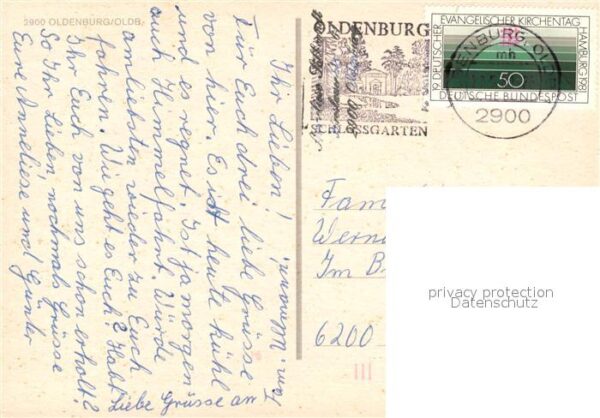 2900 OLDENBURG/OLDB.
Ihr Lieben!
Für Euch drei liebe Grüsse
von hier. Es ist heute kühl
und es regnet. Ist ja morgen
auch Himmelfahrt. Würde
am liebsten wieder zu Euch
fahren. Wie geht es Euch? Habt
Ihr Euch von uns schon erholt?
So Ihr Lieben nochmals Grüsse
Eure Anneliese und Günter
Liebe Grüsse an
Fam.
OLDENBURG
SCHLOSSGARTEN
OLDENBURG, OL
mh
2900
19. DEUTSCHER EVANGELISCHER KIRCHENTAG HAMBURG 1981
50
DEUTSCHE BUNDESPOST
Fam
Wern
Im B
6200
privacy protection
Datenschutz